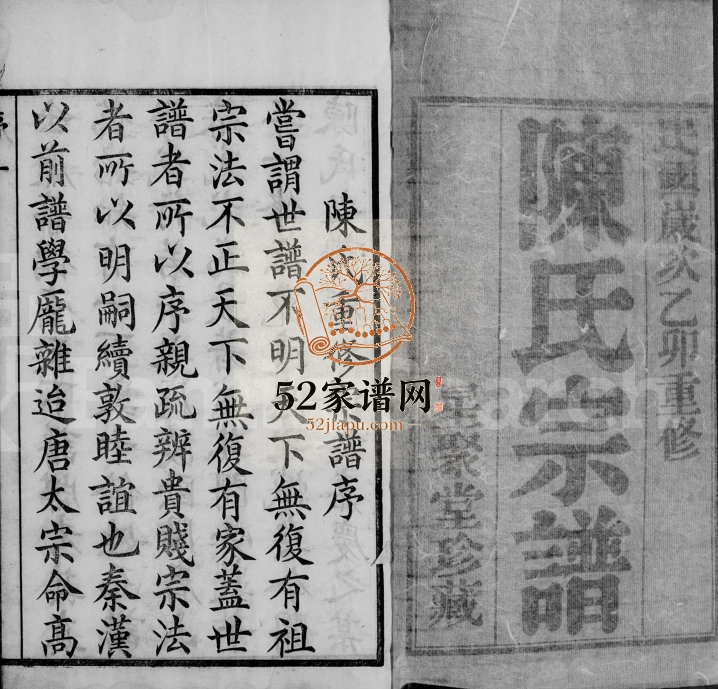 民國歲次乙卯重修
陳氏宗譜
星聚堂珍藏
陳氏重修宗譜序
嘗謂世譜不明天下無復有祖
宗法不正天下無復有家蓋世
譜者所以序親疏辨貴賤宗法
者所以明嗣續敦睦誼也秦漢
以前譜學龐雜迨唐太宗命高
序
一
52家谱网
52jiapu.com